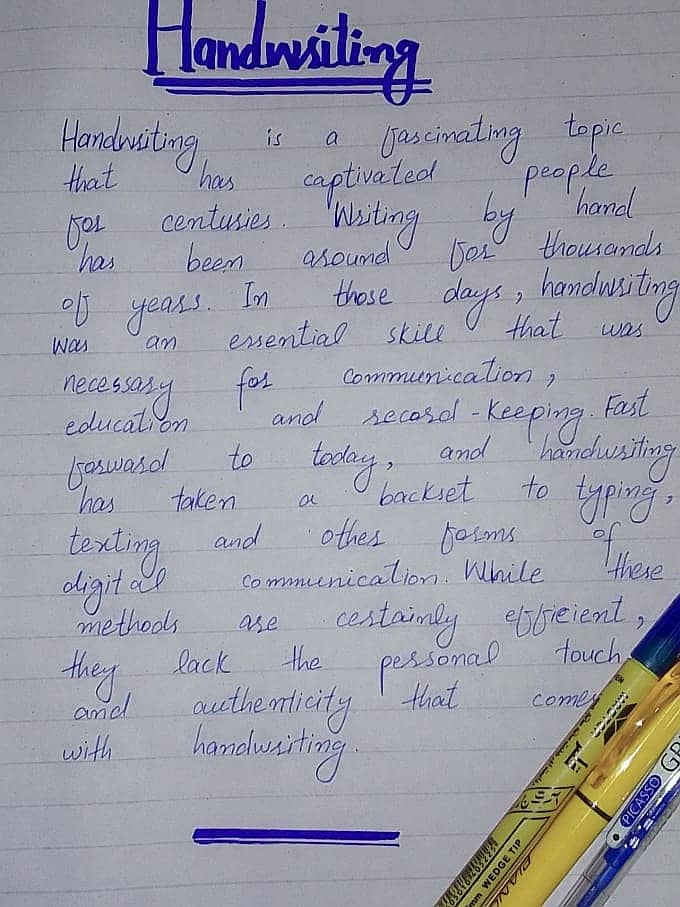 Handwriting
Handwriting is a fascinating topic
that has captivated people
for centuries. Writing by hand
has been around for thousands
of years. In those days, handwriting
was an essential skill that was
necessary for communication,
education and record-keeping. Fast
forward to today, and handwriting
has taken a backset to typing,
texting and other forms of
digital communication. While these
methods are certainly efficient,
they lack the personal touch
and authenticity that comes
with handwriting.
PICASSO
mm WEDGE TIP